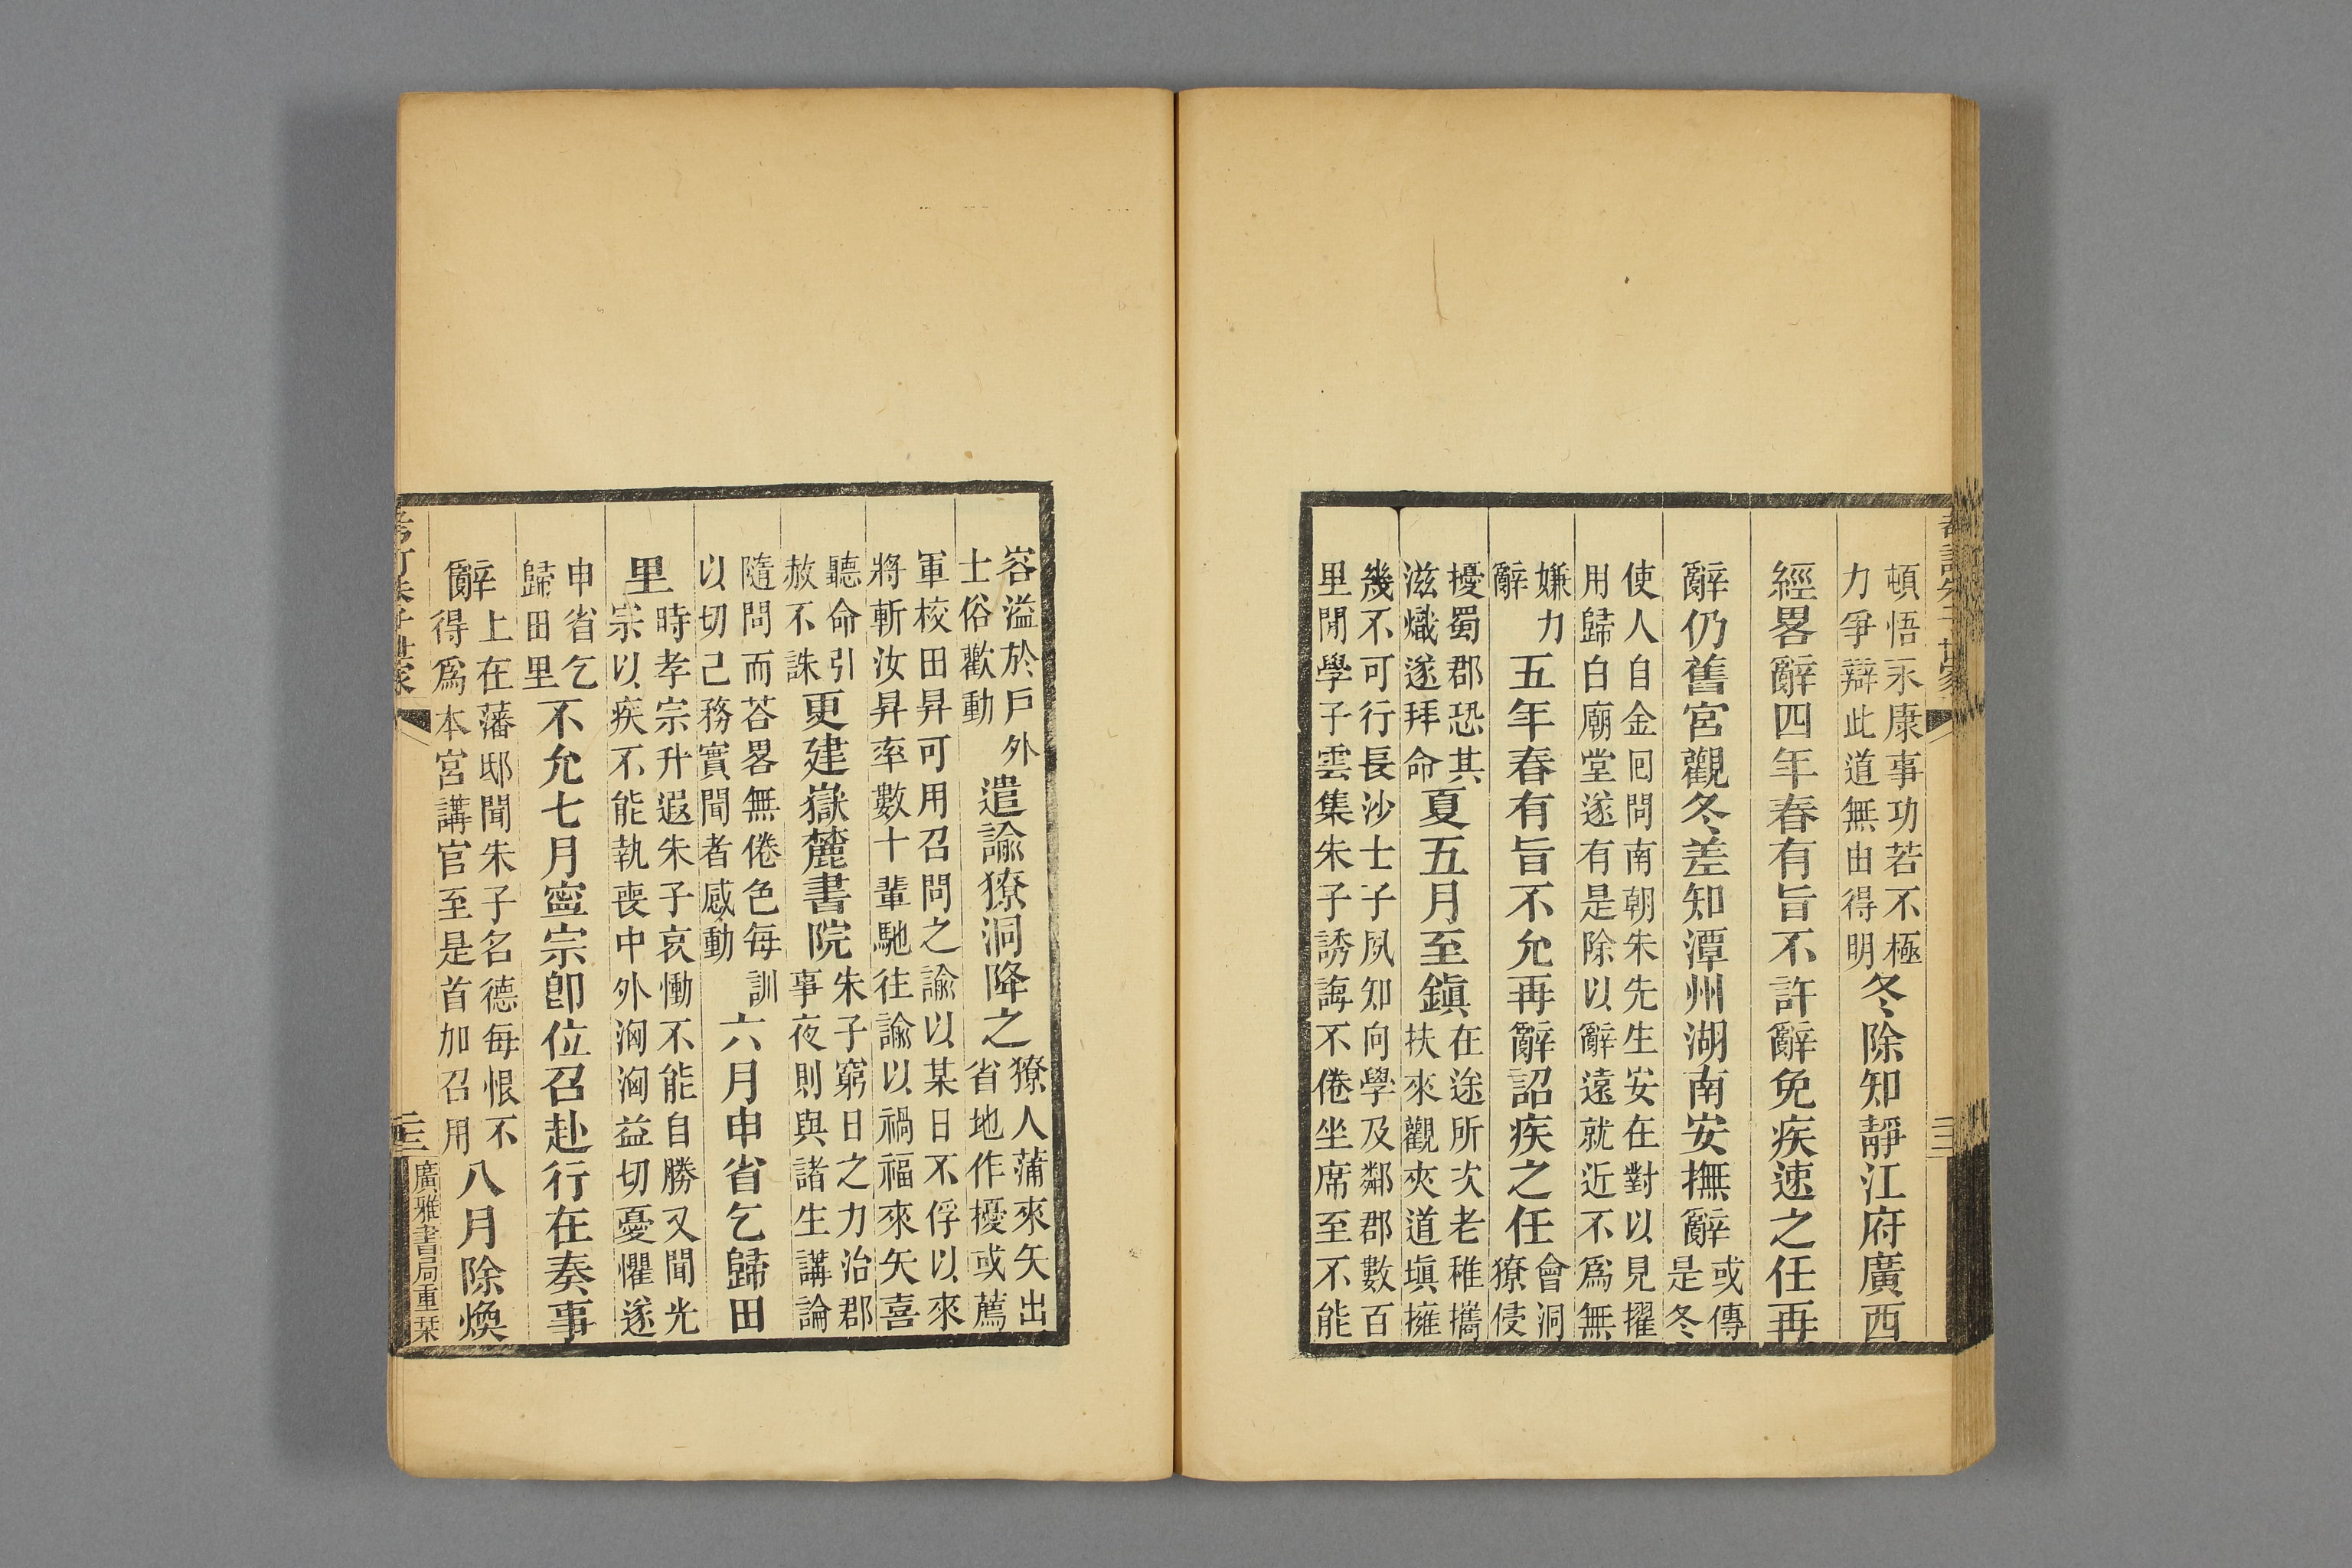 頓悟永康事功若不極
力爭辯此道無由得明
冬除知靜江府廣西
經畧辭四年春有旨不許辭免疾速之任再
辭仍舊宮觀冬差知潭州湖南安撫辭
或傳
是冬
使人自金回問南朝朱先生安在對以見擢
用歸白廟堂遂有是除以辭遠就近不爲無
嫌力
辭
五年春有旨不允再辭詔疾之任
會洞
獠侵
擾蜀郡恐其
滋熾遂拜命
夏五月至鎭
在途所次老稚攜
扶來觀夾道塡擁
幾不可行長沙士子夙知向學及鄰郡數百
里閒學子雲集朱子誘誨不倦坐席至不能
容溢於戶外
士俗歡動
遣諭獠洞降之
獠人蒲來矢出
省地作擾或薦
軍校田昇可用召問之諭以某日不俘以來
將斬汝昇率數十輩馳往諭以禍福來矢喜
聽命引
赦不誅
更建嶽麓書院
朱子窮日之力治郡
事夜則與諸生講論
隨問而荅畧無倦色每訓
以切己務實聞者感動
六月申省乞歸田
里
時孝宗升遐朱子哀慟不能自勝又聞光
宗以疾不能執喪中外洶洶益切憂懼遂
申省乞
歸田里
不允七月寧宗卽位召赴行在奏事
辭
上在藩邸聞朱子名德每恨不
得爲本宮講官至是首加召用
八月除煥
考訂朱子世家
二三
廣雅書局重栞